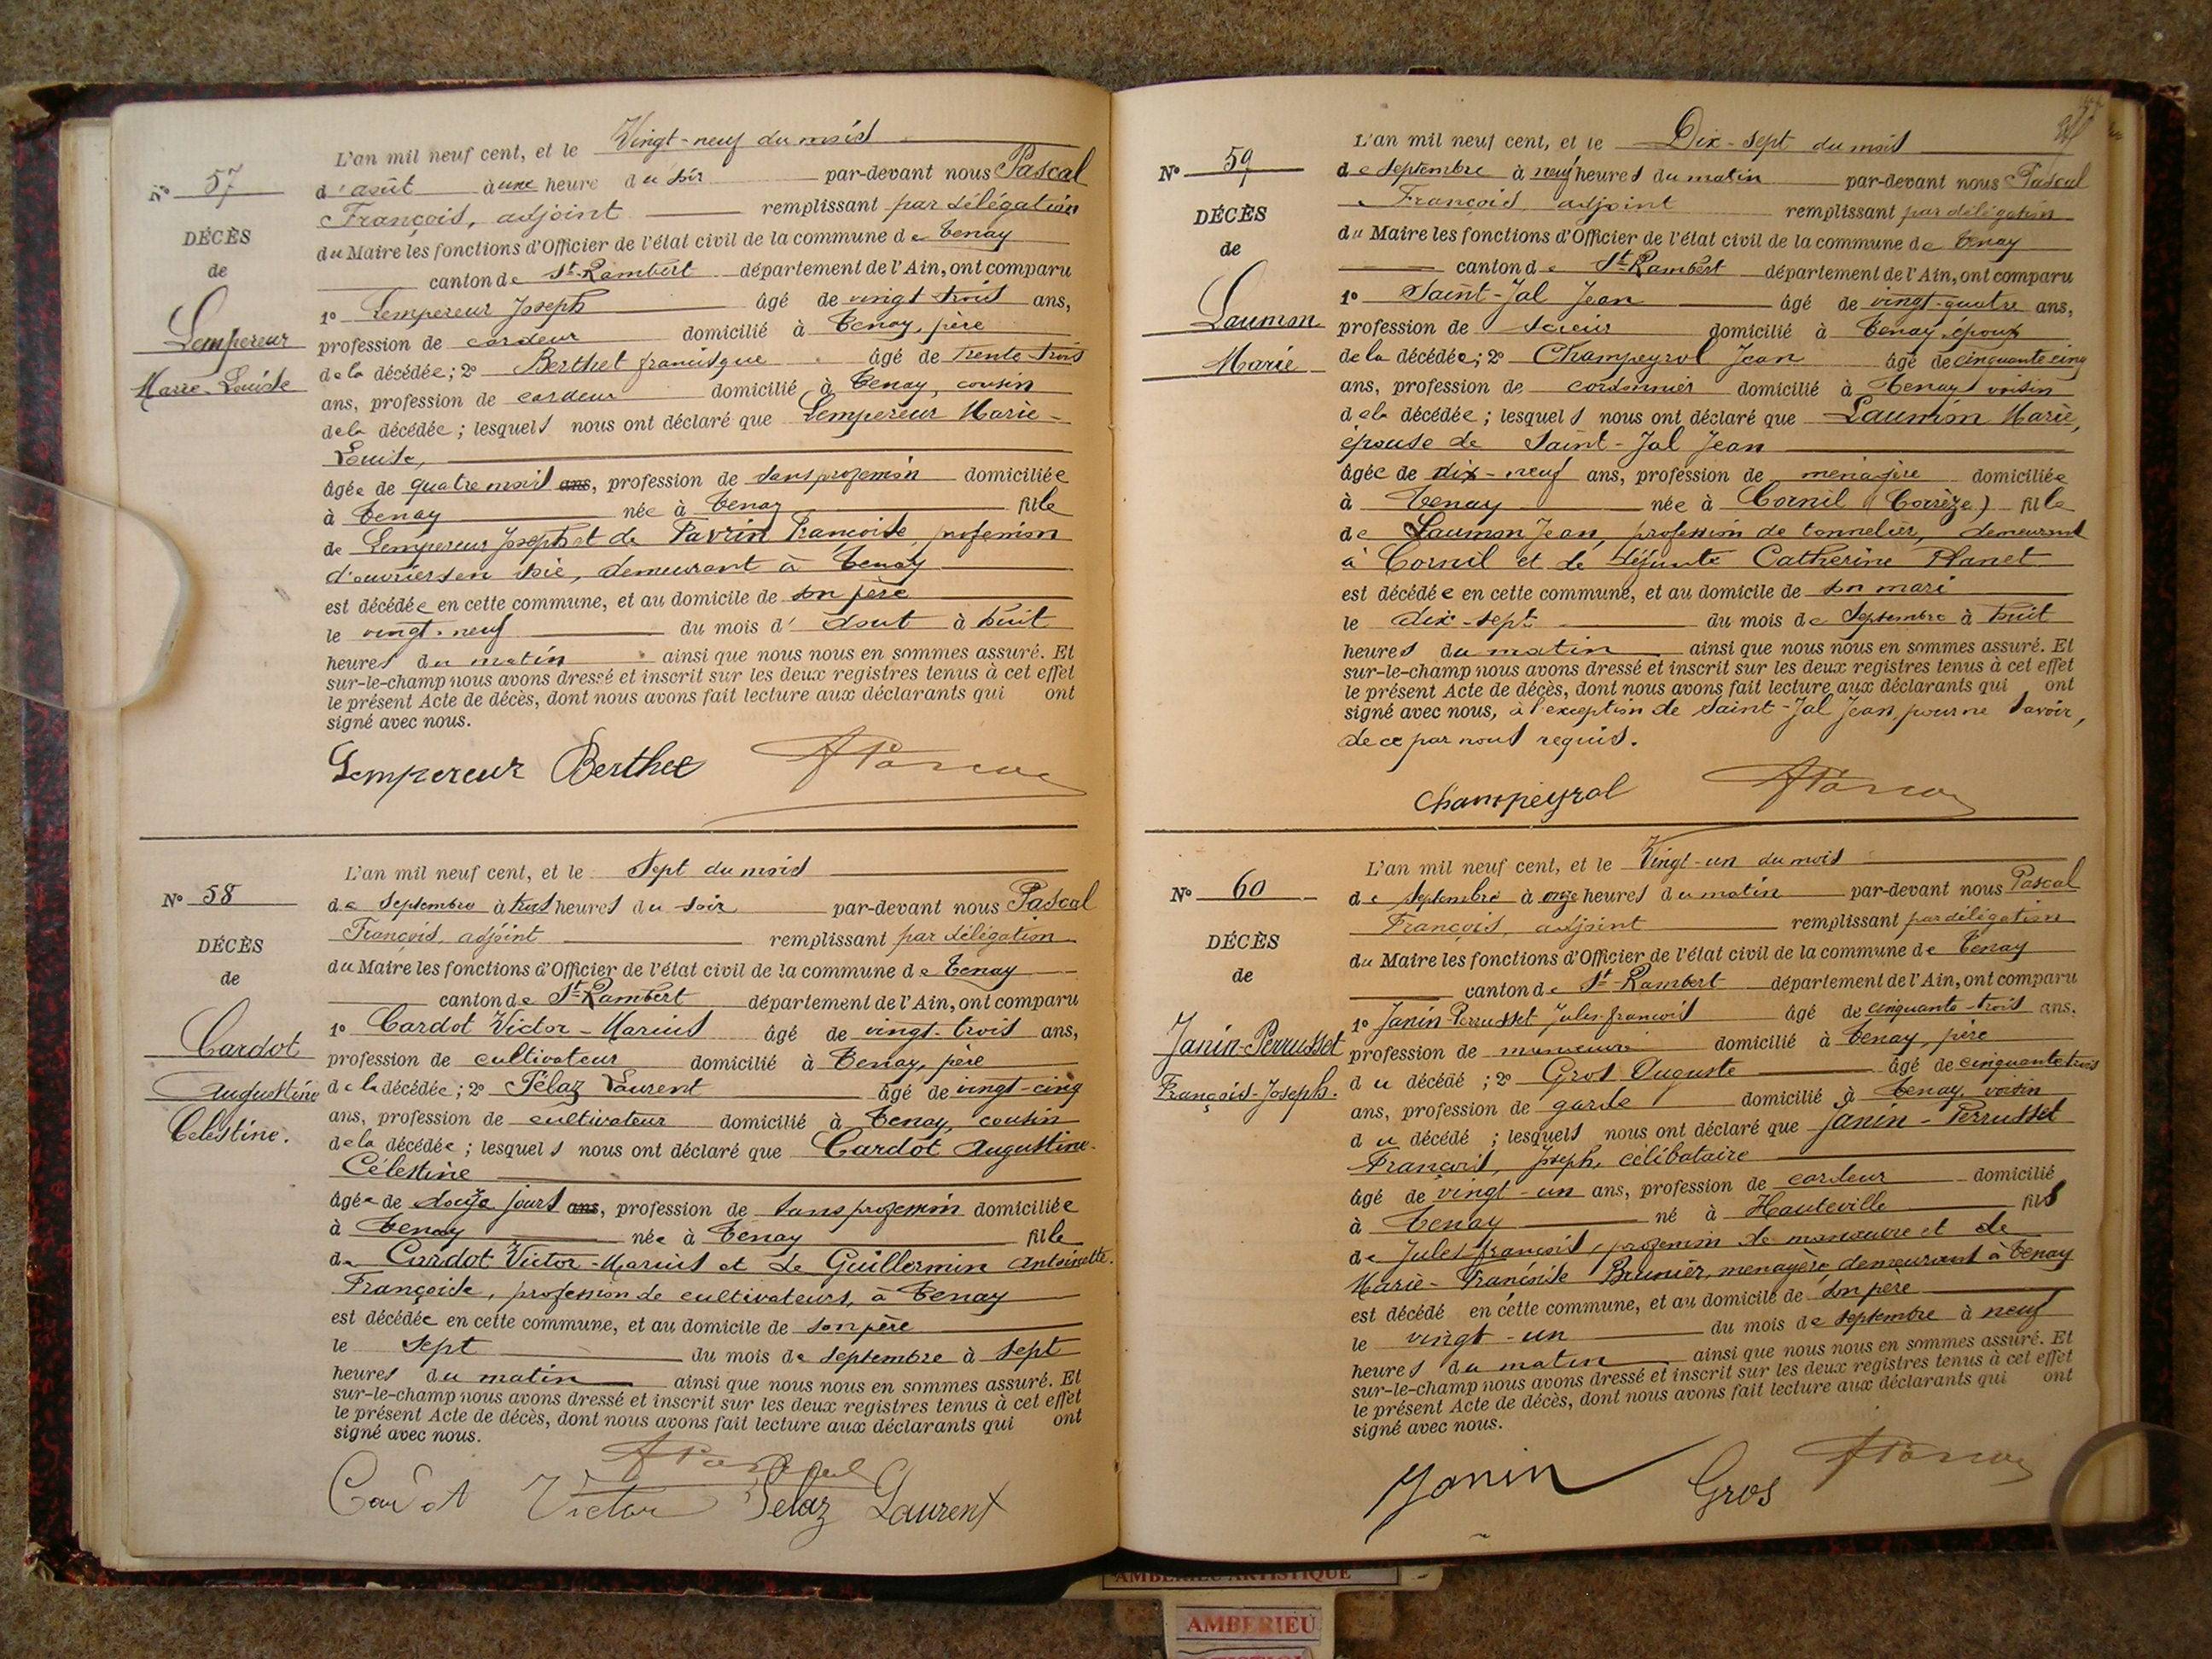 L'an mil neuf cent, et le Vingt-neuf du mois
N° 57
d'août à une heure du soir par-devant nous Pascal
François, adjoint remplissant par délégation
DÉCÈS
du Maire les fonctions d'Officier de l'état civil de la commune de Tenay
de
canton de St-Rambert département de l'Ain, ont comparu
Lempereur
Marie-Louise
1° Lempereur Joseph âgé de vingt-trois ans,
profession de cardeur domicilié à Tenay, père
de la décédée; 2° Berthet francisque âgé de trente-trois
ans, profession de cardeur domicilié à Tenay, cousin
de la décédée; lesquels nous ont déclaré que Lempereur Marie-
Louise,
âgée de quatre mois ans, profession de sans profession domiciliée
à Tenay née à Tenay fille
de Lempereur Joseph et de Favrin Françoise, profession
d'ouvriers en soie, demeurant à Tenay
est décédée en cette commune, et au domicile de son père
le vingt-neuf du mois d'août à huit
heures du matin ainsi que nous nous en sommes assuré. Et
sur-le-champ nous avons dressé et inscrit sur les deux registres tenus à cet effet
le présent Acte de décès, dont nous avons fait lecture aux déclarants qui ont
signé avec nous.
Lempereur Berthet
L'an mil neuf cent, et le Sept du mois
N° 58
de Septembre à trois heures du soir par-devant nous Pascal
François, adjoint remplissant par délégation
DÉCÈS
du Maire les fonctions d'Officier de l'état civil de la commune de Tenay
de
canton de St-Rambert département de l'Ain, ont comparu
Cardot
Augustine
Celestine.
1° Cardot Victor-Marius âgé de vingt-trois ans,
profession de cultivateur domicilié à Tenay, père
de la décédée; 2° Pélaz Laurent âgé de vingt-cinq
ans, profession de cultivateur domicilié à Tenay, cousin
de la décédée; lesquels nous ont déclaré que Cardot Augustine-
Célestine
âgée de douze jours ans, profession de sans profession domiciliée
à Tenay née à Tenay fille
de Cardot Victor-Marius et de Guillermin Antoinette-
Françoise, profession de cultivateurs, à Tenay
est décédée en cette commune, et au domicile de son père
le sept du mois de septembre à sept
heures du matin ainsi que nous nous en sommes assuré. Et
sur-le-champ nous avons dressé et inscrit sur les deux registres tenus à cet effet
le présent Acte de décès, dont nous avons fait lecture aux déclarants qui ont
signé avec nous.
Cardot Victor Pelaz Laurent
L'an mil neuf cent, et le Dix-sept du mois
N° 59
de Septembre à neuf heures du matin par-devant nous Pascal
François, adjoint remplissant par délégation
DÉCÈS
du Maire les fonctions d'Officier de l'état civil de la commune de Tenay
de
canton de St-Rambert département de l'Ain, ont comparu
Laumon
Marie
1° Saint-Jal Jean âgé de vingt-quatre ans,
profession de scieur domicilié à Tenay, époux
de la décédée; 2° Champeyrol Jean âgé de cinquante cinq
ans, profession de cordonnier domicilié à Tenay, voisin
de la décédée; lesquels nous ont déclaré que Laumon Marie,
épouse de Saint-Jal Jean
âgée de dix-neuf ans, profession de menagère domiciliée
à Tenay née à Cornil (Corrèze) fille
de Laumon Jean, profession de tonnelier, demeurant
à Cornil et de défunte Catherine Planet
est décédée en cette commune, et au domicile de son mari
le dix-sept du mois de Septembre à huit
heures du matin ainsi que nous nous en sommes assuré. Et
sur-le-champ nous avons dressé et inscrit sur les deux registres tenus à cet effet
le présent Acte de décès, dont nous avons fait lecture aux déclarants qui ont
signé avec nous, à l'exception de Saint-Jal Jean pour ne savoir,
de ce par nous requis.
Champeyrol
L'an mil neuf cent, et le Vingt-un du mois
N° 60
de Septembre à onze heures du matin par-devant nous Pascal
François, adjoint remplissant par délégation
DÉCÈS
du Maire les fonctions d'Officier de l'état civil de la commune de Tenay
de
canton de St-Rambert département de l'Ain, ont comparu
Janin-Perrusset
François-Joseph.
1° Janin-Perrusset Jules-francois âgé de cinquante-trois ans,
profession de manœuvre domicilié à Tenay, père
du décédé; 2° Gros Auguste âgé de cinquante trois
ans, profession de garde domicilié à Tenay, voisin
du décédé; lesquels nous ont déclaré que Janin-Perrusset
François, Joseph, célibataire
âgé de vingt-un ans, profession de cardeur domicilié
à Tenay né à Hauteville fils
de Jules-françois, profession de manœuvre et de
Marie-Françoise Brunier, menagère, demeurant à Tenay
est décédé en cette commune, et au domicile de son père
le vingt-un du mois de septembre à neuf
heures du matin ainsi que nous nous en sommes assuré. Et
sur-le-champ nous avons dressé et inscrit sur les deux registres tenus à cet effet
le présent Acte de décès, dont nous avons fait lecture aux déclarants qui ont
signé avec nous.
Janin Gros
AMBERIEU ARTISTIQUE
AMBERIEU